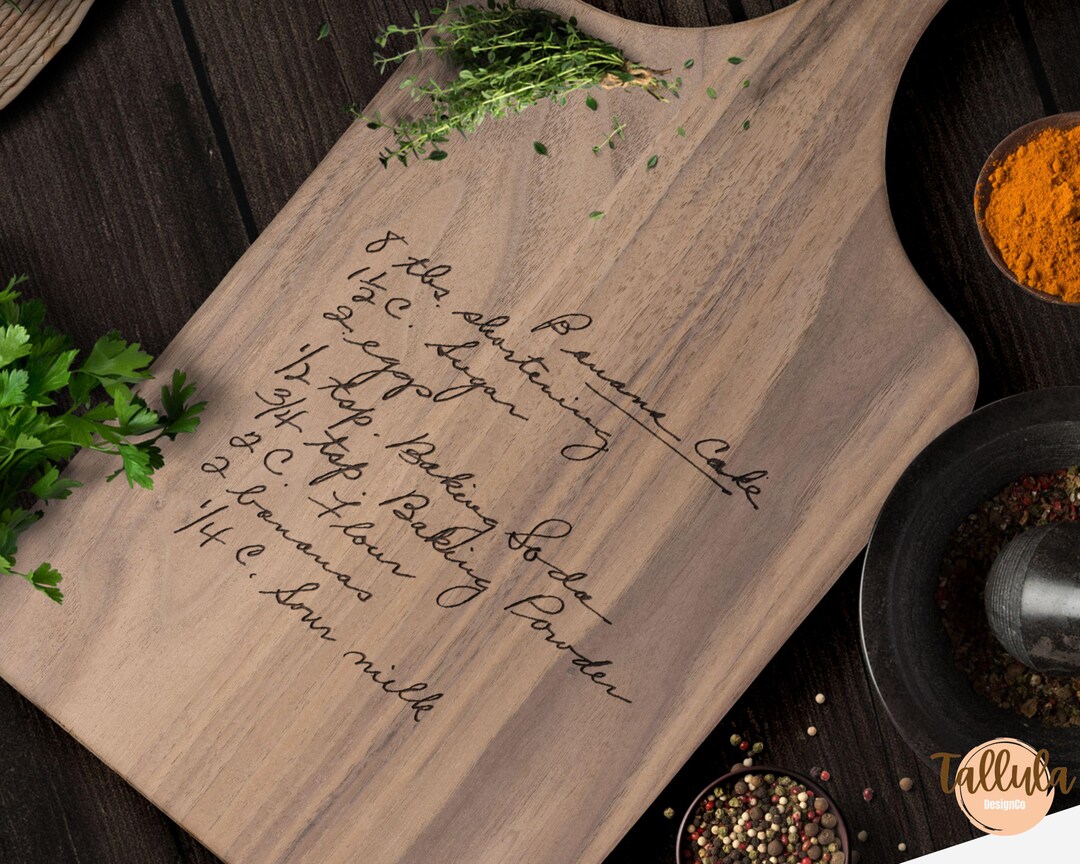 Banana Cake
8 tbs. shortening
1½ C. Sugar
2 eggs
1/2 tsp. Baking Soda
3/4 tsp. Baking Powder
2 C. Flour
2 bananas
1/4 C. Sour milk
Tallula
DesignCo